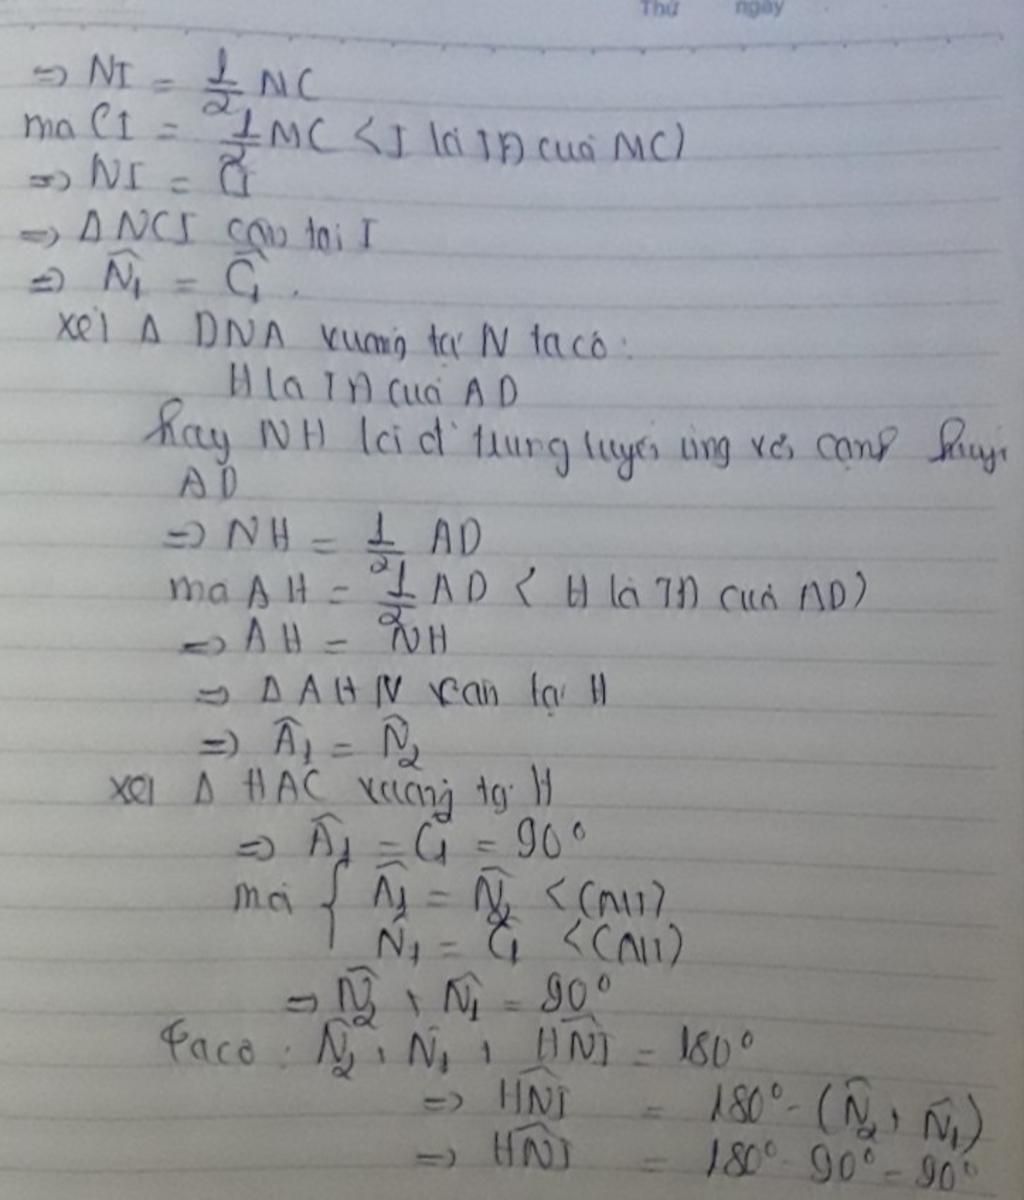 Thứ ngày
=> NI = 1/2 NC
mà CI = 1/2 MC (I là TĐ của MC)
=> NI = CI
=> Δ NCI cân tại I
=> N̂₁ = Ĉ₁.
xét Δ DNA vuông tại N ta có:
H là TĐ của AD
hay NH là đ' trung tuyến ứng với cạnh huyền
AD
=> NH = 1/2 AD
mà AH = 1/2 AD ( H là TĐ của AD)
=> AH = NH
=> Δ AHN cân tại H
=> Â₁ = N̂₂
xét Δ HAC vuông tại H
=> Â₁ = Ĉ₁ = 90°
mà { Â₁ = N̂₂ (cmt)
N̂₁ = Ĉ₁ (cmt)
=> N̂₂ + N̂₁ = 90°
Ta có : N̂₂ + N̂₁ + HN̂I = 180°
=> HN̂I = 180° - (N̂₂ + N̂₁)
=> HN̂I = 180° - 90° = 90°